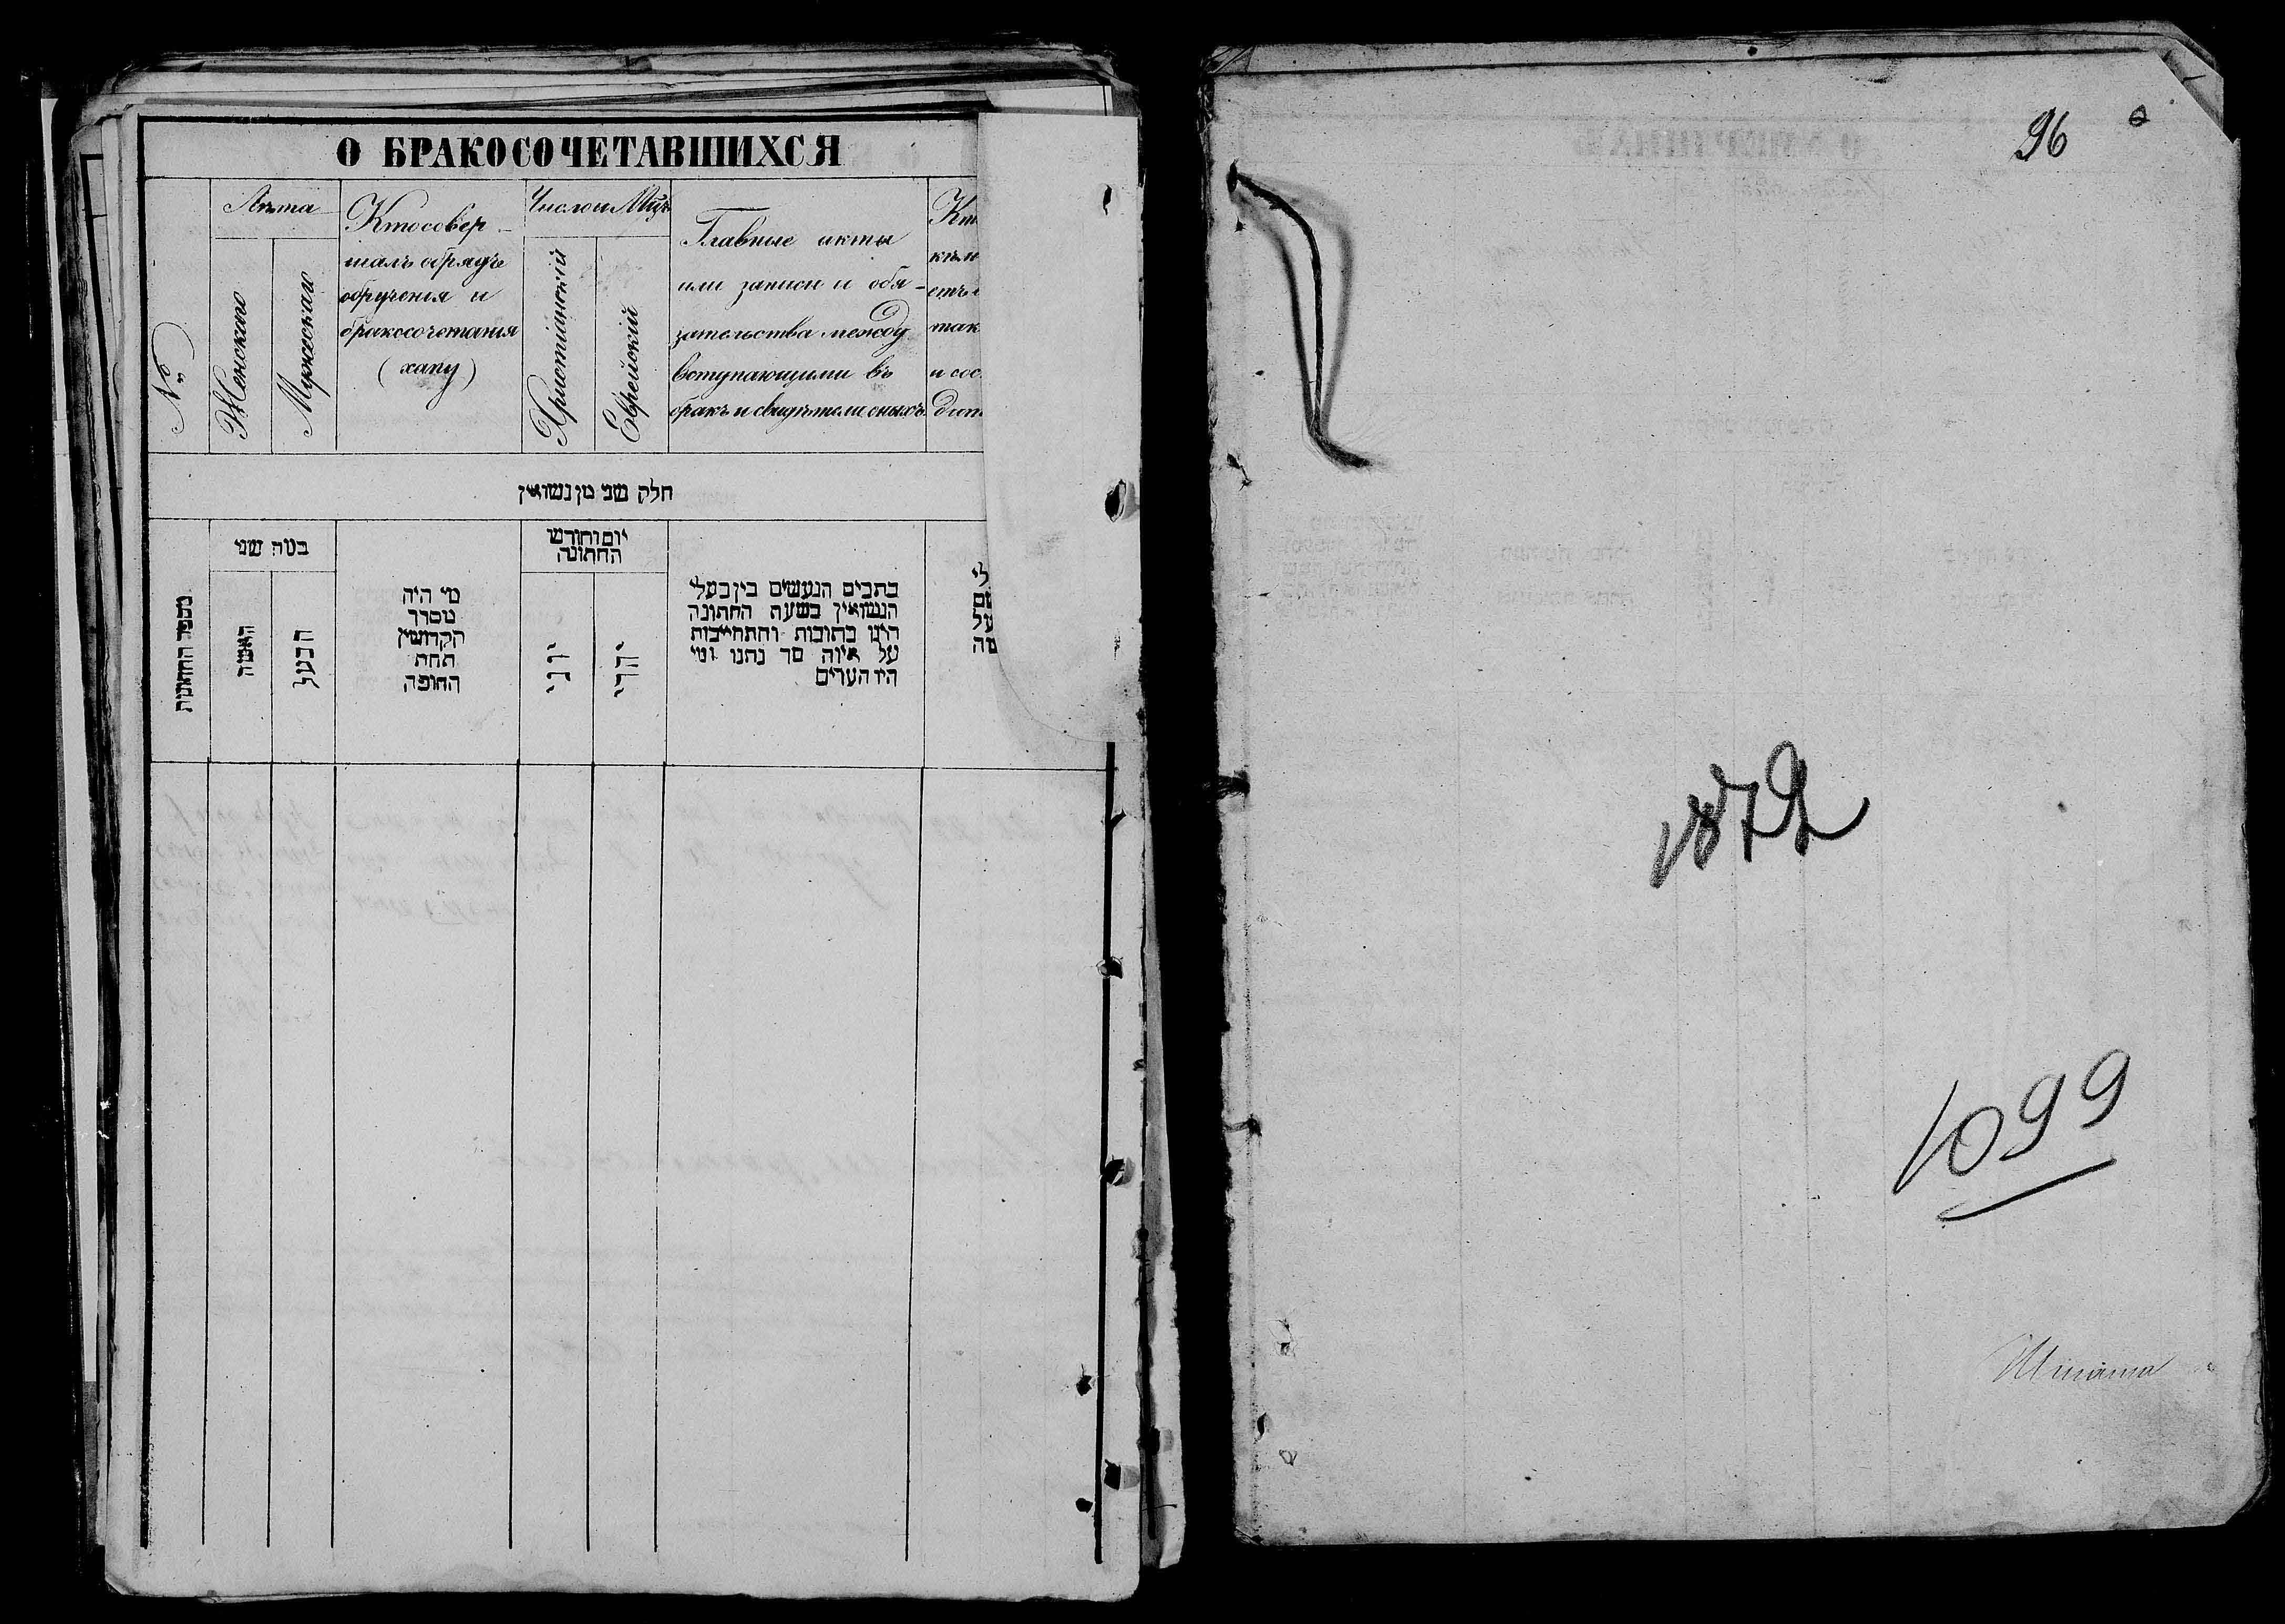 О БРАКОСОЧЕТАВШИХСЯ
№
Лѣта
Женскаго
Мужескаго
Кто совер-
шалъ обрядъ
обрученія и
бракосочетанія
(хапу)
Число и Мцъ
Христіанскій
Еврейскій
Главные акты
или записи и обя-
зательства между
вступающими въ
бракъ и свидѣтели оныхъ.
Кт
къ
етъ
так
и сос
дит
חלק שני מן נשואין
מספר החתונות
כמה שני
האשה
הבעל
מי היה
מסדר
הקדושין
תחת
החופה
יום וחודש
החתונה
יוני
יהודי
כתבים הנעשים בין בעלי
הנשואין בשעת החתונה
היינו כתובות והתחייבות
על איזה סך נתנו ומי
היו העדים
לי
שם
על
מה
96
1872
1099